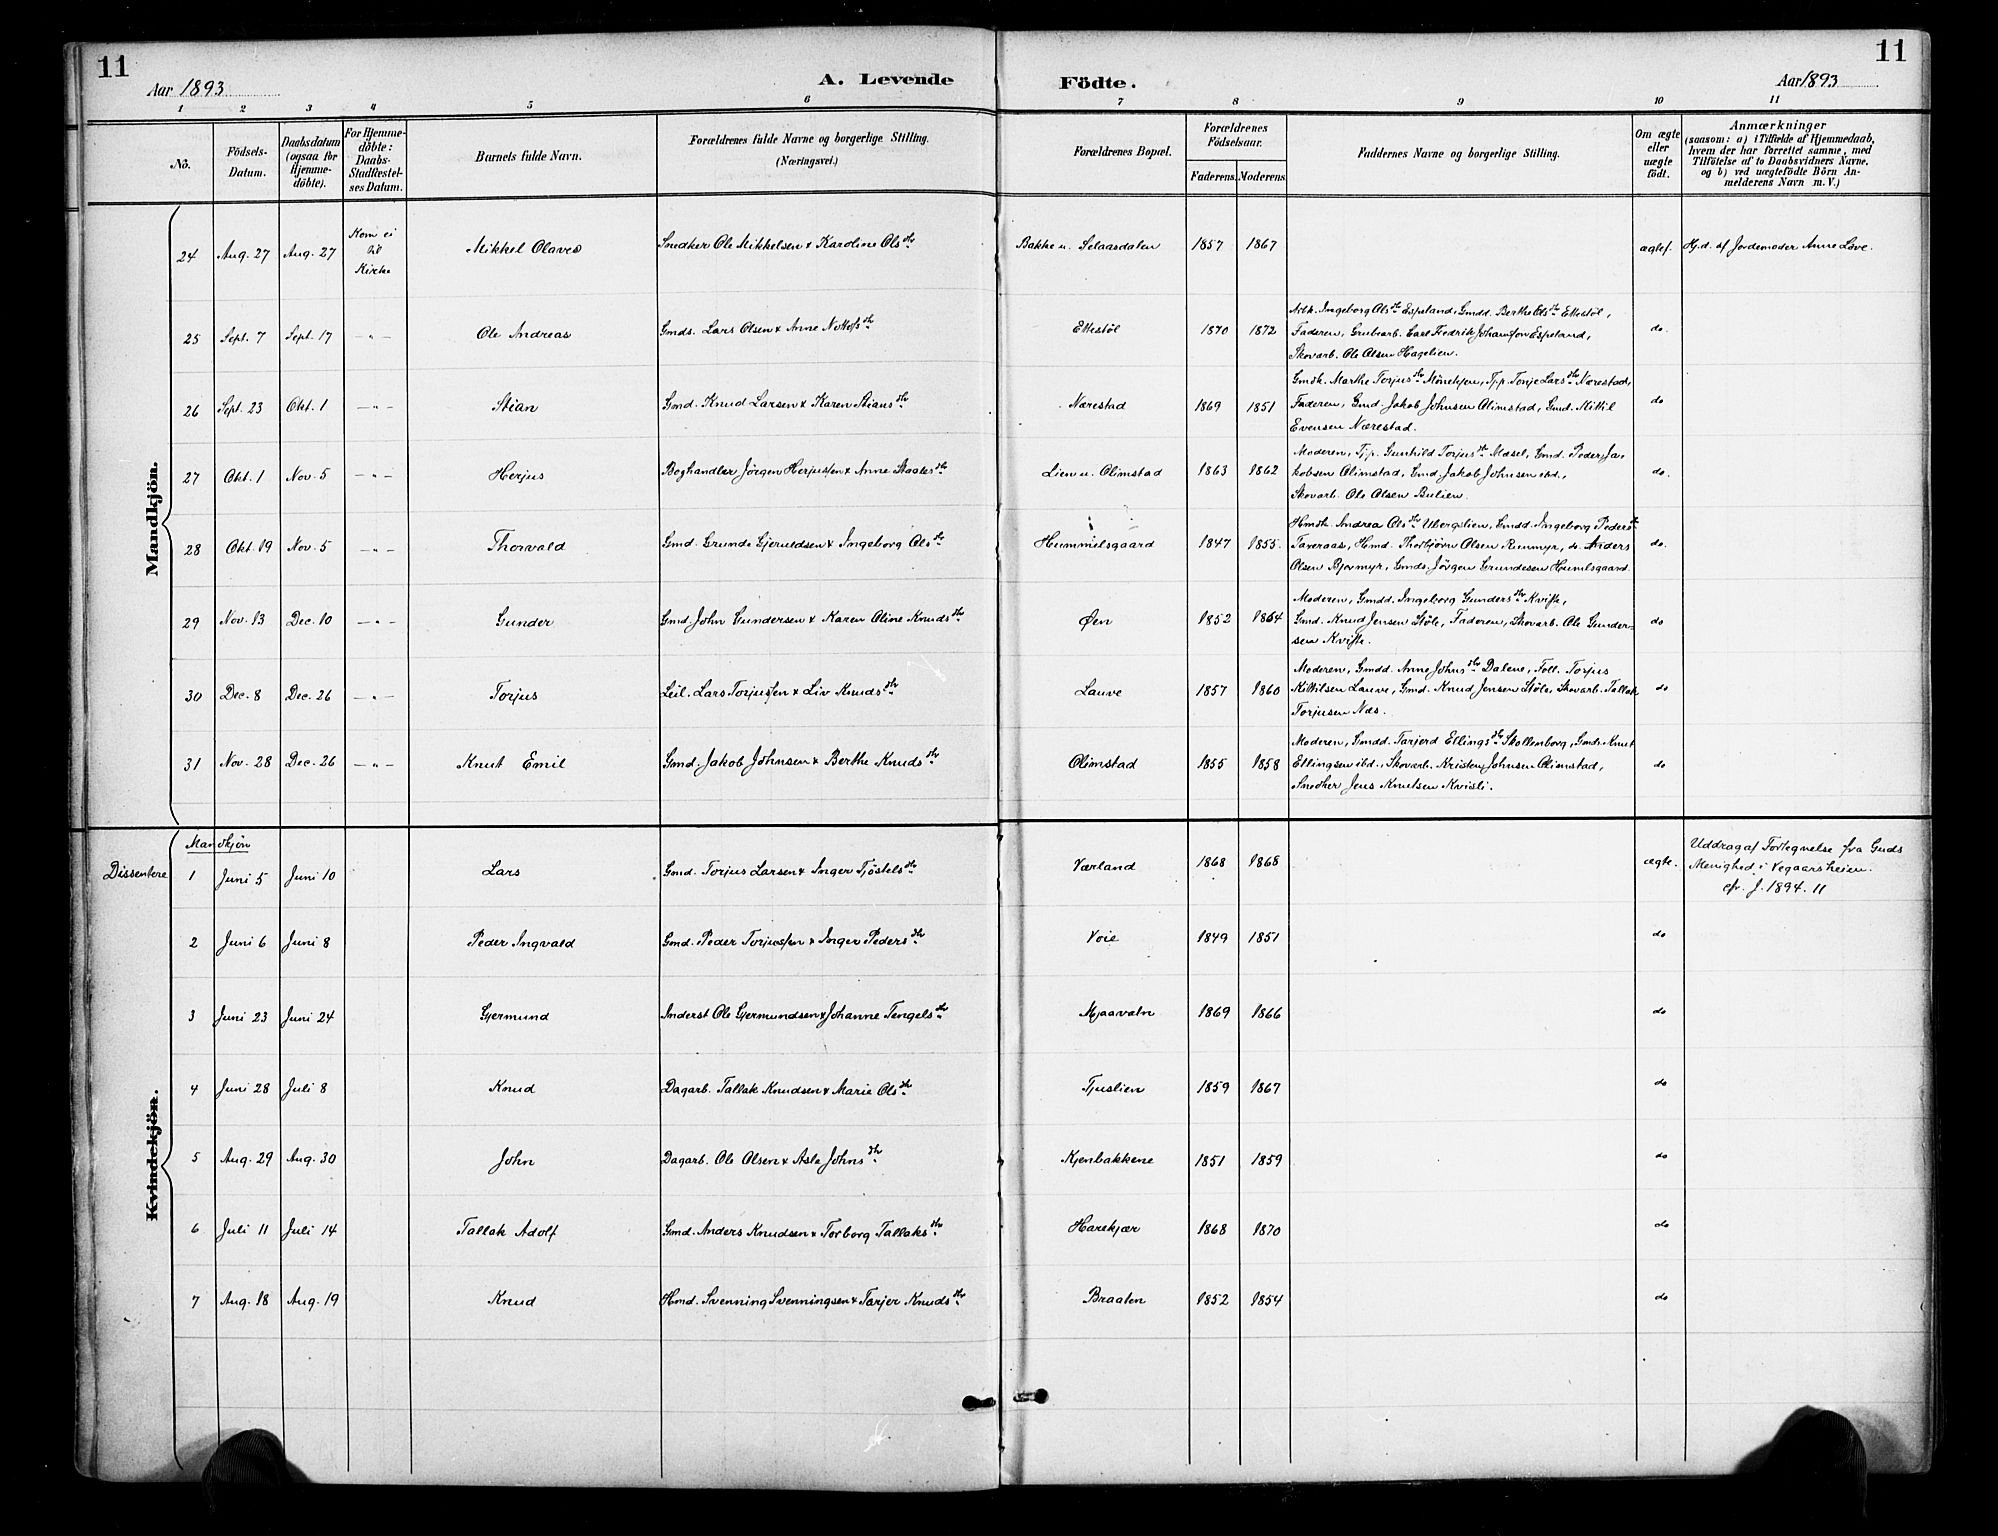 11
Aar 1893
A. Levende
Födte.
Aar 1893
11
1 2 3 4 5 6 7 8 9 10 11
No.
Födsels-Datum.
Daabsdatum (ogsaa for Hjemmedöbte).
For Hjemmedöbte: Daabs-Stadfestelses Datum.
Barnets fulde Navn.
Forældrenes fulde Navne og borgerlige Stilling. (Næringsvei.)
Forældrenes Bopæl.
Forældrenes Födselsaar.
Faderens. Moderens.
Faddernes Navne og borgerlige Stilling.
Om ægte eller uægte födt.
Anmærkninger (saasom: a) i Tilfælde af Hjemmedaab, hvem der har forrettet samme, med Tilföielse af to Daabsvidners Navne, og b) ved uægtefödte Börn Anmelderens Navn m. V.)
Mandkjön.
24 Aug. 27 Aug. 27 Kom ei til Kirke Mikkel Olaves Snedker Ole Mikkelsen & Karoline Olsdtr Bakke u. Selaasdalen 1857 1867 ægtef. Hj.d. af Jordemoder Anne Löve.
25 Sept. 7 Sept. 17 — " — Ole Andreas Gmds. Lars Olsen & Anne Nottofsdtr Ettestöl 1870 1872 Ingeborg Olsdtr Espeland, Gmdd. Berthe Olsdtr Ettestöl,
Faderen, Grubearb. Carl Fredrik Johansson Espeland,
Skovarb. Ole Olsen Hagelien. do.
26 Sept. 23 Okt. 1 — " — Stian Gmd. Knud Larsen & Karen Stiansdtr Nærestad 1869 1851 Gmdk. Marthe Torjusdtr Mönekjen, Tj.p. Tonje Larsdtr Nærestad,
Faderen, Gmd. Jakob Johnsen Olimstad, Gmd. Kittil
Evensen Nærestad. do
27 Okt. 1 Nov. 5 — " — Herjus Boghandler Jörgen Herjussen & Anne Staalesdtr Lien u. Olimstad 1863 1862 Moderen, Tj.p. Gunhild Torjusdtr Mosel, Gmd. Peder Ja-
kobsen Olimstad, Gmd. Jakob Johnsen ibd.,
Skovarb. Ole Olsen Bulien. do.
28 Okt. 19 Nov. 5 — " — Thorvald Gmd. Grunde Gjeruldsen & Ingeborg Olsdtr Hummelsgaard 1847 1855. Hmdk. Andrea Olsdtr Ubergslien, Gmdd. Ingeborg Pedersdtr
Taxeraas, Hmd. Thorbjörn Olsen Runmyr, do. Anders
Olsen Bjovmyr, Gmds. Jörgen Grundesen Humlsgaard. do.
29 Nov. 13 Dec. 10 — " — Gunder Gmd. John Gundersen & Karen Oline Knudsdtr Øen 1852 1864 Moderen, Gmdd. Ingeborg Gundersdtr Kvifte,
Gmd. Knud Jensen Stöle, Faderen, Skovarb. Ole Gunder-
sen Kvifte. do
30 Dec. 8 Dec. 26 — " — Torjus Leil. Lars Torjussen & Liv Knudsdtr Lauve 1857 1860 Moderen, Gmdd. Anne Johnsdtr Dalene, Foll. Torjus
Kittilsen Lauve, Gmd. Knud Jensen Stöle, Skovarb. Tallak
Torjusen Næs. do
31 Nov. 28 Dec. 26 — " — Knut Emil Gmd. Jakob Johnsen & Berthe Knudsdtr Olimstad 1855 1858 Moderen, Gmdd. Tarjerd Ellingsdtr Skollenborg, Gmds. Knut
Ellingsen ibd., Skovarb. Kristen Johnsen Olimstad,
Snedker Jens Knutsen Kvisli. do
Mandkjön
Dissentere
Kvindekjön.
1 Juni 5 Juni 10 Lars Gmd. Torjus Larsen & Inger Tjöstelsdtr Værland 1868 1868 ægte. Uddrag af Fortegnelse fra Guds
Menighed i Vegaarsheien.
cfr. J. 1894. 11
2 Juni 6 Juni 8 Peder Ingvald Gmd. Peder Torjussen & Inger Pedersdtr Voie 1849 1851 do
3 Juni 23 Juni 24 Gjermund Inderst Ole Gjermundsen & Johanne Tengelsdtr Mjaavatn 1869 1866 do
4 Juni 28 Juli 8 Knud Dagarb. Tallak Knudsen & Marie Olsdtr Tjuslien 1859 1867 do
5 Aug. 29 Aug. 30 John Dagarb. Ole Olsen & Asle Johnsdtr Kjenbakkene 1851 1859 do
6 Juli 11 Juli 14 Tallak Adolf Gmd. Anders Knudsen & Torborg Tallaksdtr Harekjær 1868 1870 do
7 Aug. 18 Aug. 19 Knud Hmd. Svenning Svenningsen & Tarjer Knudsdtr Braaten 1852 1854 do